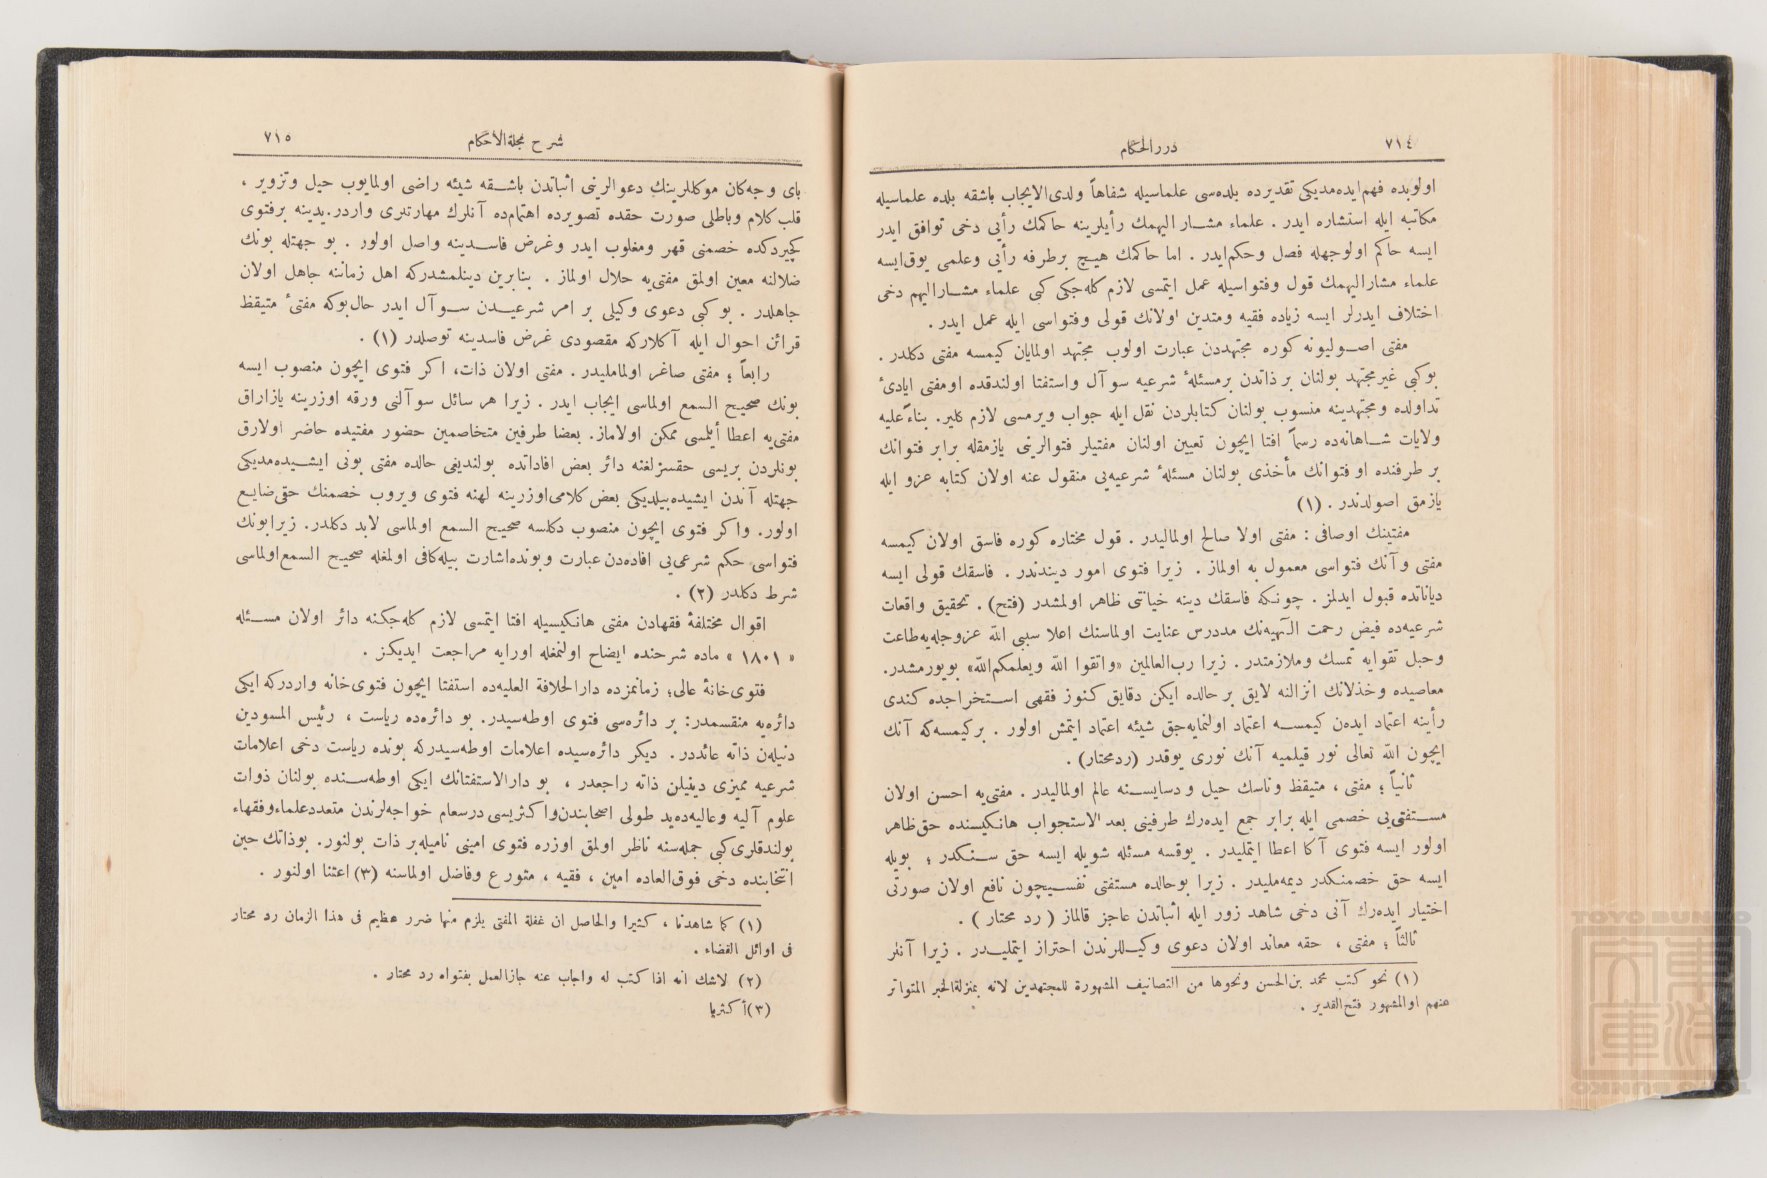 ٧١٤
دررالحكام
اولوبده فهم ايده‌مديكى تقديرده بلده‌سى علماسيله شفاهاً ولدى‌الايجاب باشقه بلده علماسيله
مكاتبه ايله استشاره ايدر . علماء مشــار اليهمك رأيلرينه حاكمك رأيى دخى توافق ايدر
ايسه حاكم اولوجهله فصل وحكم‌ايدر . اما حاكمك هيـچ برطرفه رأيى وعلمى يوق‌ايسه
علماء مشاراليهمك قول وفتواسيله عمل ايتمسى لازم كله‌جكى كبى علماء مشــاراليهم دخى
اختلاف ايدرلر ايسه زياده فقيه ومتدين اولانك قولى وفتواسى ايله عمل ايدر .
مفتى اصــوليونه كوره مجتهددن عبارت اولوب مجتهد اولمايان كيمسه مفتى دكلدر .
بوكبى غيرمجتهد بولنان بر ذاتدن برمسئلهٔ شرعيه سوآل واستفتا اولندقده اومفتى ايادىٔ
تداولده ومجتهدينه منسوب بولنان كتابلردن نقل ايله جواب ويرمسى لازم كلير. بناءً‌عليه
ولايات شــاهانه‌ده رسماً افتا ايچون تعيين اولنان مفتيلر فتوالرينى يازمقله برابر فتوانك
بر طرفنده او فتوانك مأخذى بولنان مسئلهٔ شرعيه‌يى منقول عنه اولان كتابه عزو ايله
يازمق اصولدندر . (١)
مفتينك اوصافى : مفتى اولا صالح اولماليدر . قول مختاره كوره فاسق اولان كيمسه
مفتى و آنك فتواسى معمول به اولماز . زيرا فتوى امور ديندندر . فاسقك قولى ايسه
دياناتده قبول ايدلمز . چونكه فاسقك دينه خيانتى ظاهر اولمشدر (فتح) . تحقيق واقعات
شرعيه‌ده فيض رحمت الٓهيه‌نك مددرس عنايت اولماسنك اعلا سببى الله عزوجله‌يه‌طاعت
وحبل تقوايه تمسك وملازمتدر . زيرا رب‌العالمين «واتقوا الله ويعلمكم‌الله» بويورمشدر.
معاصيده وخذلانك انزالنه لايق بر حالده ايكن دقايق كنوز فقهى اســتخراجده كندى
رأينه اعتماد ايده‌ن كيمســه اعتماد اولنمايه‌جق شيئه اعتماد ايتمش اولور . بركيمسه‌كه آنك
ايچون الله تعالى نور قيلميه آنك نورى يوقدر (ردمحتار) .
ثانياً ؛ مفتى ، متيقظ وناسك حيل و دسايســنه عالم اولماليدر . مفتى‌يه احسن اولان
مســتفتى‌يى خصمى ايله برابر جمع ايده‌رك طرفينى بعد الاستجواب هانكيسنده حق‌ظاهر
اولور ايسه فتوى آكا اعطا ايتمليدر . يوقسه مسئله شويله ايسه حق ســنكدر ؛ بويله
ايسه حق خصمنكدر ديمه‌مليدر . زيرا بوحالده مستفتى نفســيچون نافع اولان صورتى
اختيار ايده‌رك آنى دخى شاهد زور ايله اثباتدن عاجز قالماز ( رد محتار ) .
ثالثاً ؛ مفتى ، حقه معاند اولان دعوى وكيــللرندن احتراز ايتمليــدر . زيرا آنلر
(١) نحو كتب محمد بن‌الحسن ونحوها من التصانيف المشهورة للمجتهدين لانه بمنزلة‌الخبر المتواتر
عنهم اوالمشهور فتح‌القدير .
شرح مجلة‌الأحكام
٧١٥
باى وجه‌كان موكللرينك دعوالرينى اثباتدن باشــقه شيئه راضى اولمايوب حيل وتزوير ،
قلب كلام وباطلى صورت حقده تصويرده اهتمام‌ده آنلرك مهارتلرى واردر. يدينه برفتوى
كچيردكده خصمنى قهر ومغلوب ايدر وغرض فاســدينه واصل اولور . بو جهتله بونك
ضلالنه معين اولمق مفتى‌يه حلال اولماز . بنابرين دينلمشدركه اهل زماننه جاهل اولان
جاهلدر . بو كبى دعوى وكيلى بر امر شرعيــدن ســوآل ايدر حال‌بوكه مفتىٔ متيقظ
قرائن احوال ايله آكلاركه مقصودى غرض فاسدينه توصلدر (١) .
رابعاً ؛ مفتى صاغر اولماملیدر . مفتى اولان ذات، اكر فتوى ايچون منصوب ايسه
بونك صحيح السمع اولماسى ايجاب ايدر . زيرا هر سائل سوآلنى ورقه اوزرينه يازاراق
مفتى‌يه اعطا أيلمسى ممكن اولاماز. بعضا طرفين متخاصمين حضور مفتيده حاضر اولارق
بونلردن بريسى حقسزلغنه دائر بعض افاداتده بولنديغى حالده مفتى بونى ايشــيده‌مديكى
جهتله آندن ايشيده‌بيلديكى بعض كلامى‌اوزرينه لهنه فتوى ويروب خصمنك حقى‌ضايـع
اولور. واكر فتوى ايچون منصوب دكلسه صحيح السمع اولماسى لابد دكلدر. زيرابونك
فتواسى حكم شرعى‌يى افاده‌دن عبارت وبونده‌اشارت بيله‌كافى اولمغله صحيح السمع‌اولماسى
شرط دكلدر (٢) .
اقوال مختلفهٔ فقهادن مفتى هانكيسيله افتا ايتمسى لازم كله‌جكنه دائر اولان مســئله
« ١٨٠١ » ماده شرحنده ايضاح اولنمغله اورايه مراجعت ايديكز .
فتوى‌خانهٔ عالى؛ زمانمزده دارالخلافة العليه‌ده استفتا ايچون فتوى‌خانه واردركه ايكى
دائره‌يه منقسمدر: بر دائره‌سى فتوى اوطه‌سيدر. بو دائره‌ده رياست ، رئيس المسودين
دنيله‌ن ذاته عائددر . ديكر دائره‌سيده اعلامات اوطه‌سيدركه بونده رياست دخى اعلامات
شرعيه مميزى دينيلن ذاته راجعدر ، بو دارالاستفتانك ايكى اوطه‌ســنده بولنان ذوات
علوم آليه وعاليه‌ده‌يد طولى اصحابندن‌واكثريسى درسعام خواجه‌لرندن متعددعلماءوفقهاء
بولندقلرى‌كبى جمله‌سنه ناظر اولمق اوزره فتوى امينى ناميله‌بر ذات بولنور. بوذاتك حين
انتخابنده دخى فوق‌العاده امين ، فقيه ، متورع وفاضل اولماسنه (٣) اعتنا اولنور .
(١) كما شاهدنا ، كثيرا والحاصل ان غفلة المفتى يلزم منها ضرر عظيم فى هذا الزمان رد محتار
فى اوائل القضاء .
(٢) لاشك انه اذا كتب له واجاب عنه جازالعمل بفتواه رد محتار .
(٣) أكثريا
TOYO BUNKO
東洋
文庫
TOYO BUNKO